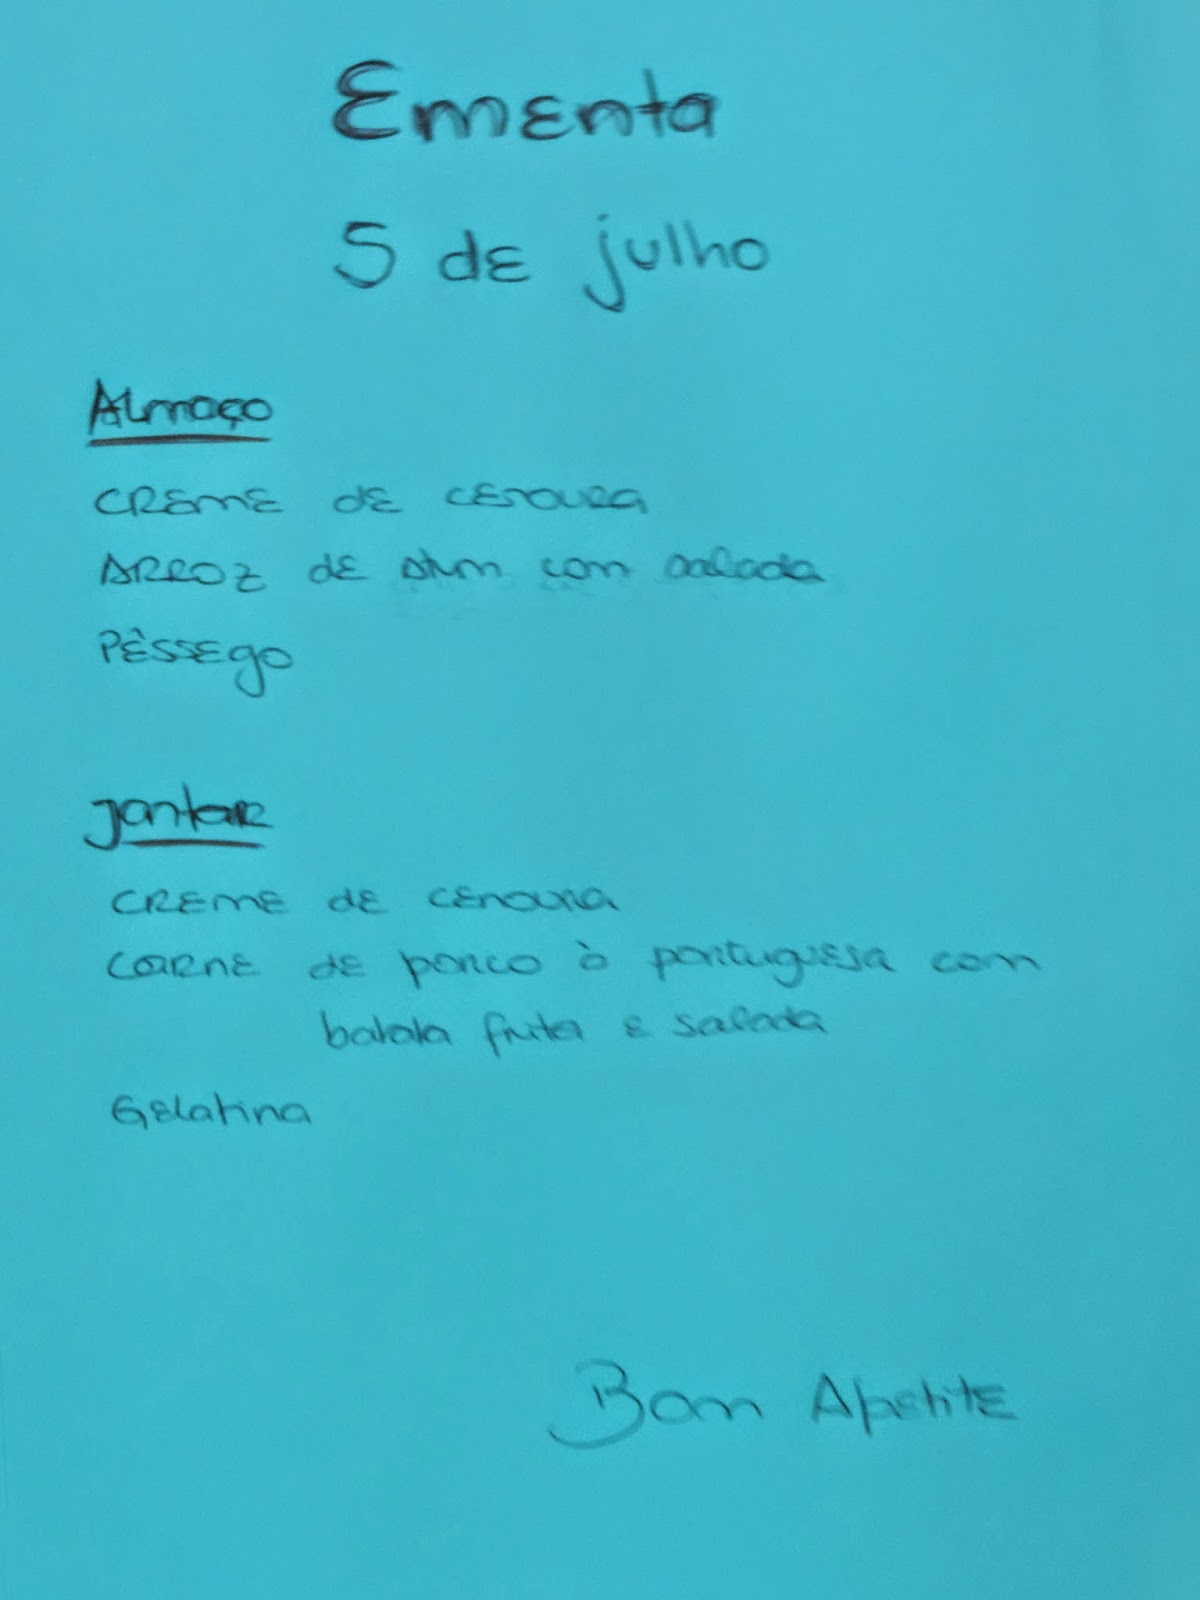 Ementa
5 de julho
Almoço
Creme de cenoura
Arroz de atum com salada
Pêssego
Jantar
Creme de cenoura
Carne de porco à portuguesa com
batata frita e salada
Gelatina
Bom Apetite